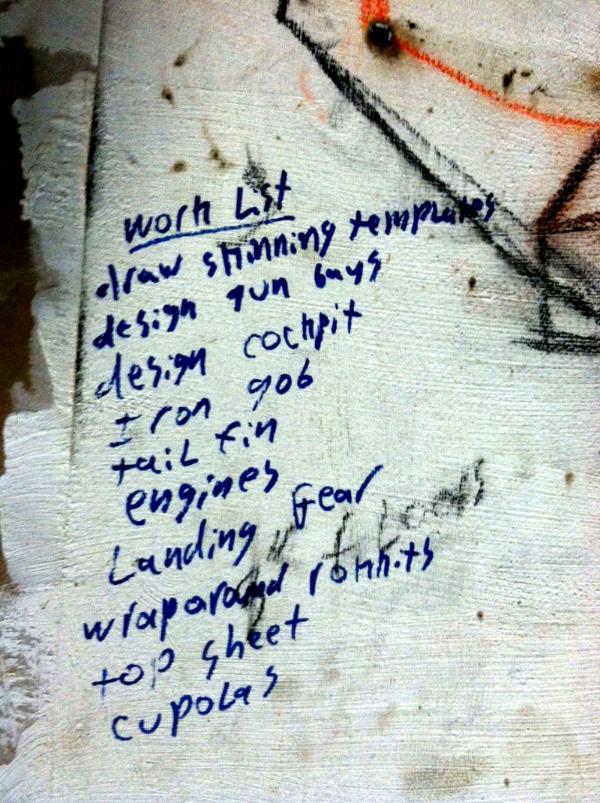 work List
draw skinning templates
design gun bays
design cockpit
Iron gob
tail fin
engines
Landing Gear
wraparound
top sheet
cupolas